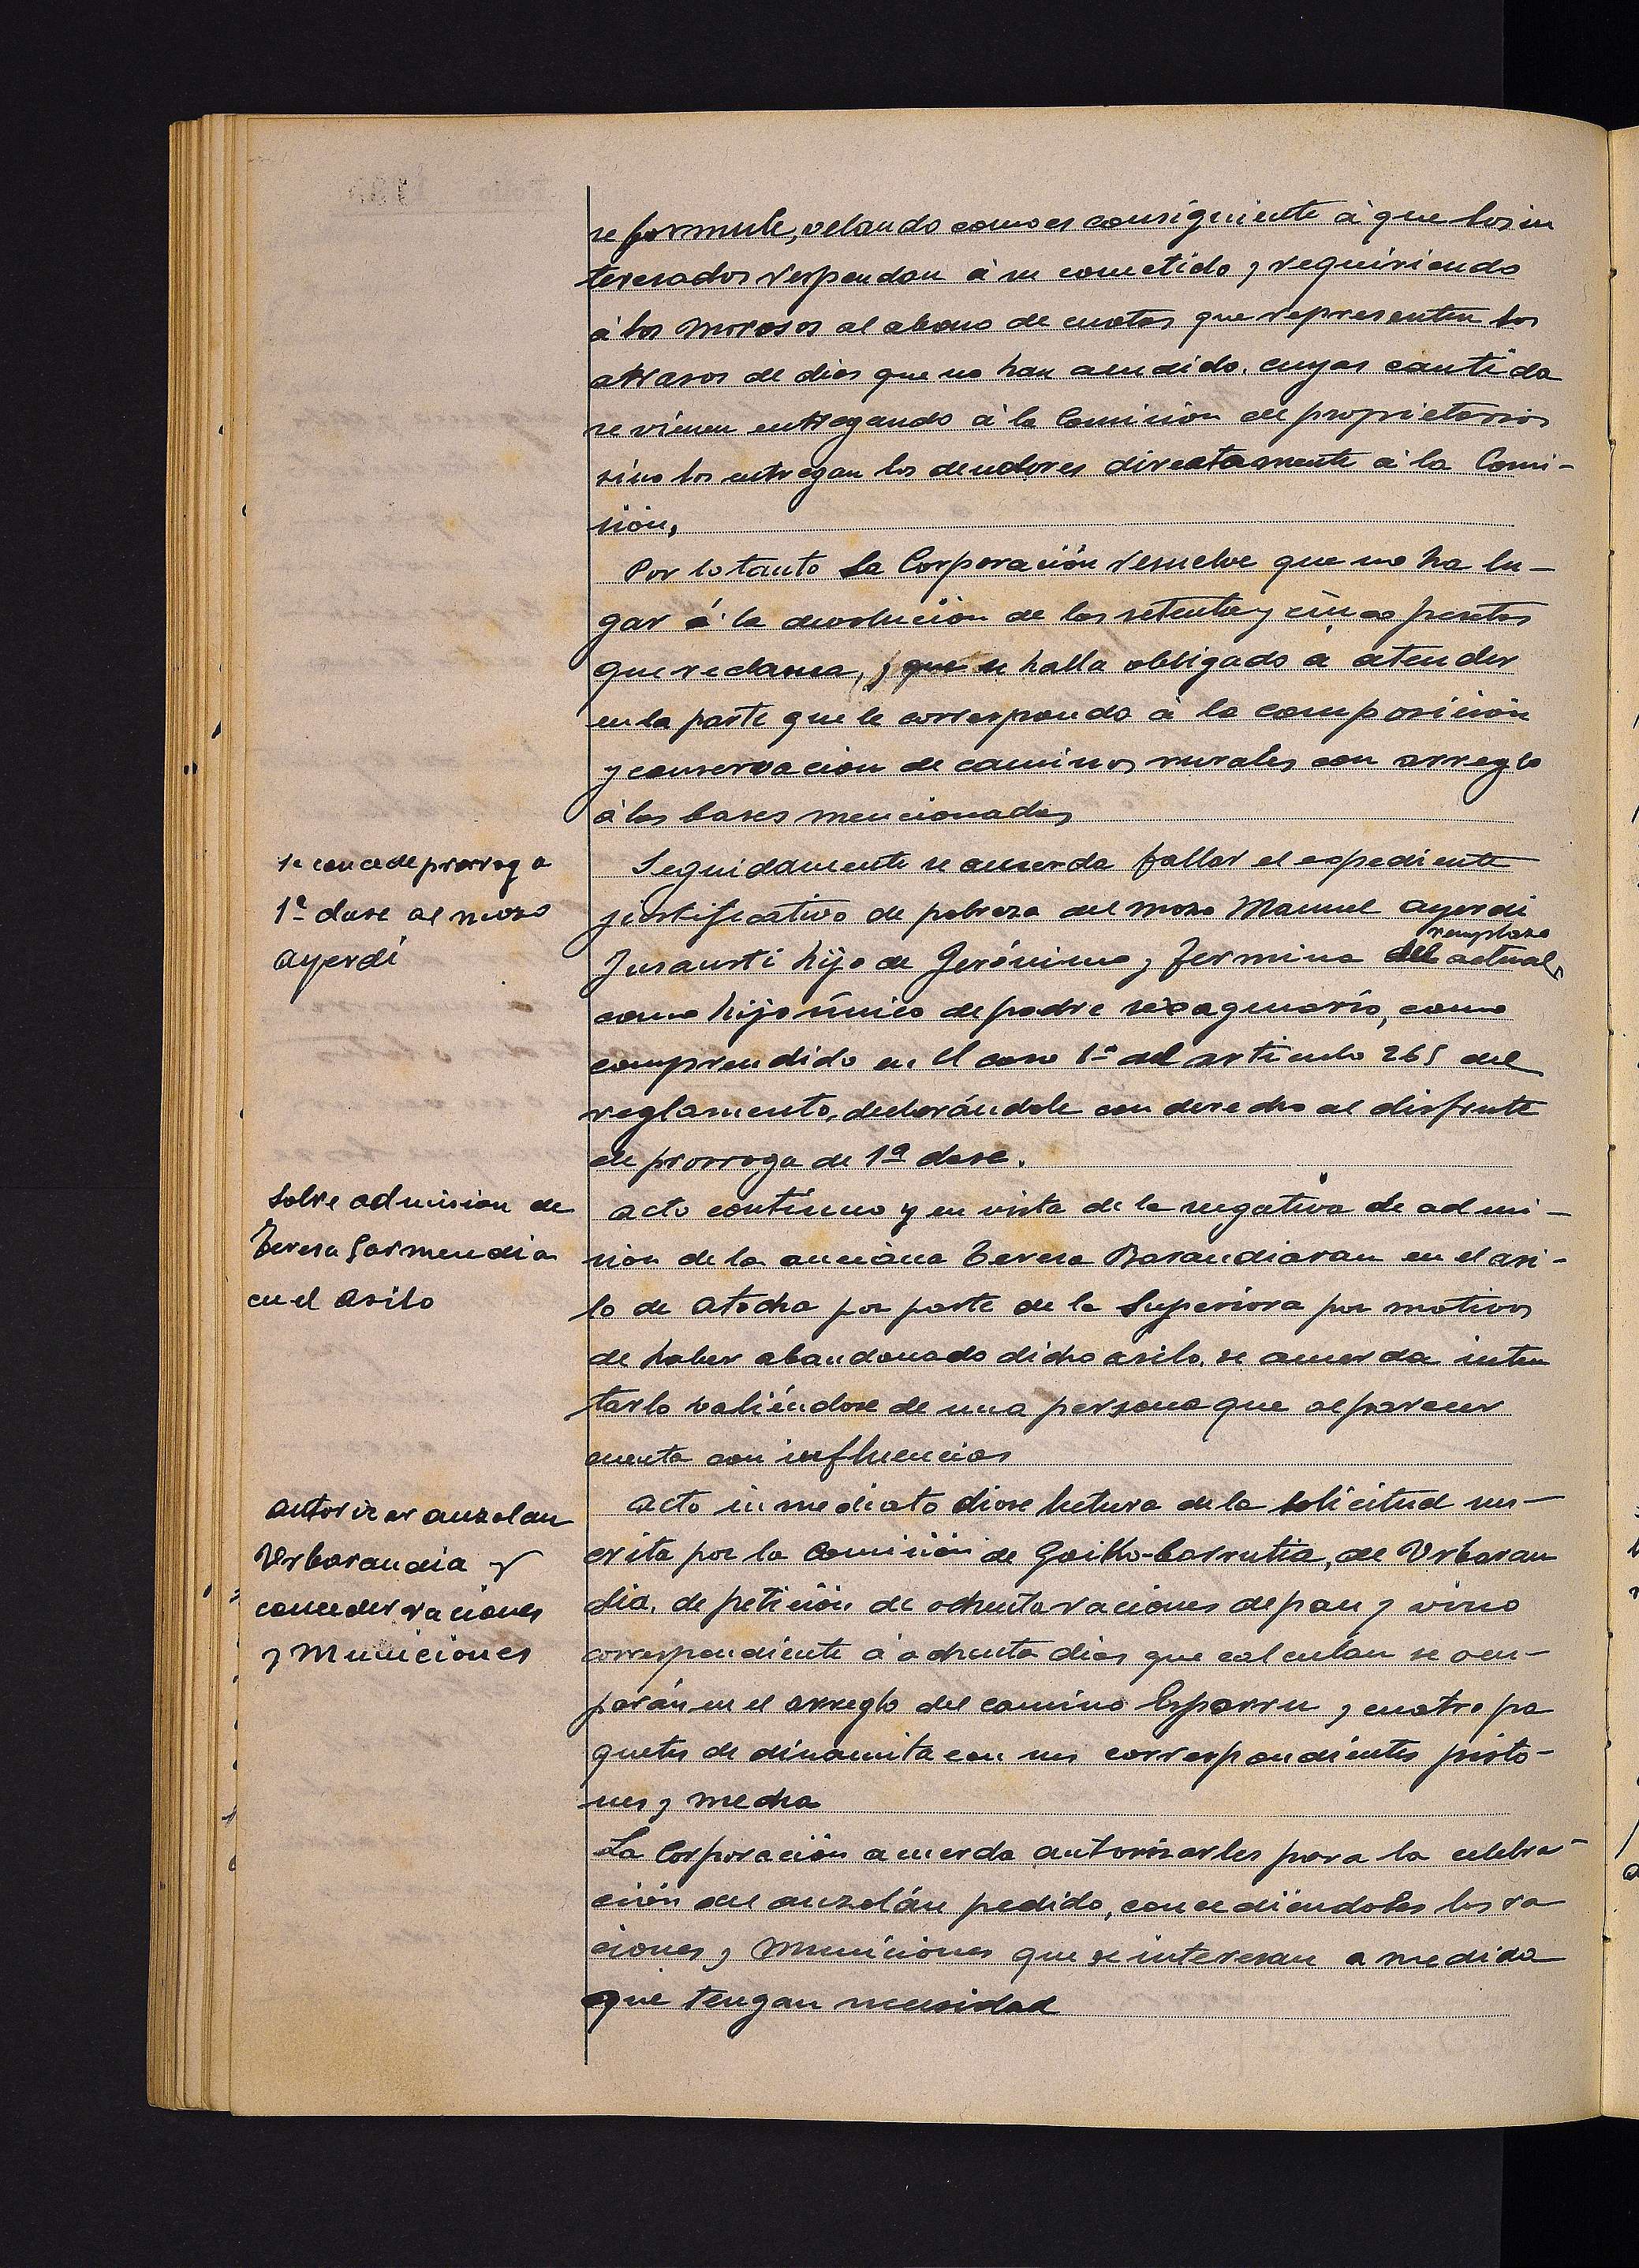 se formule, velando como es consiguiente á que los in
teresados respondan á su cometido y requiriendo
á los morosos al abono de cuotas que representen los
atrasos de dias que no han acudido, cuyas cantida
se vienen entregando á la Comisión de propietarios
sino los entregan los deudores directamente á la Comi-
sión,
Por lo tanto La Corporación resuelve que no ha lu-
gar á la devolución de las setenta y cinco pesetas
que reclama, y que se halla obligado á atender
en la parte que le corresponda á la composición
y conservacion de caminos rurales con arreglo
á las bases mencionadas
Se concede prorroga
1ª clase al mozo
Ayerdi
Seguidamente se acuerda fallar el expediente
justificativo de pobreza del mozo Manuel Ayerdi
remplazo
Insausti hijo de Gerónimo y Fermina del actual,
como hijo único de padre sexagenario, como
comprendido en el caso 1º del articulo 265 del
reglamento, declarándole con derecho al disfrute
de prorroga de 1ª clase.
Sobre admision de
Teresa Garmendia
en el Asilo
Acto contínuo y en vista de la negativa de admi-
sion de la anciana Teresa Barandiaran en el asi-
lo de Atocha por parte de la Superiora por motivos
de haber abandonado dicho asilo, se acuerda inten
tarlo valiéndose de una persona que al parecer
cuenta con influencias
Autorizar auzolan
Urbarandia y
conceder raciones
y Municiones
Acto inmediato diose lectura de la solicitud sus-
crita por la Comisión de Goiko-barrutia, de Urbaran
dia, de petición de ochenta raciones de pan y vino
correspondiente á ochenta dias que calculan se ocu-
parán en el arreglo del camino Esparru y cuatro pa
quetes de dinamita con sus correspondientes pisto-
nes y mecha
La Corporación acuerda autorizarles para la celebra-
ción del auzolán pedido, concediéndoles las ra
ciones y Municiones que se interesan a medida
que tengan necesidad